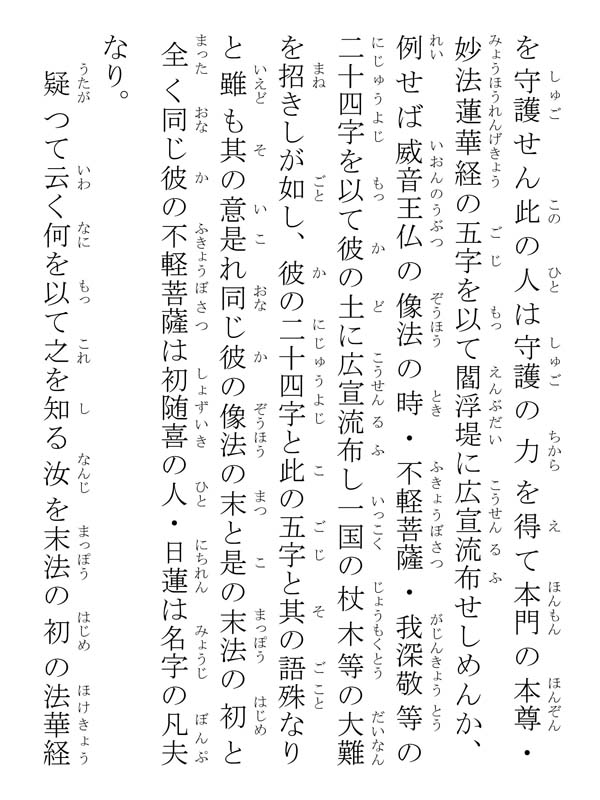 を守護せん此の人は守護の力を得て本門の本尊・
妙法蓮華経の五字を以て閻浮堤に広宣流布せしめんか、
例せば威音王仏の像法の時・不軽菩薩・我深敬等の
二十四字を以て彼の土に広宣流布し一国の杖木等の大難
を招きしが如し、彼の二十四字と此の五字と其の語殊なり
と雖も其の意是れ同じ彼の像法の末と是の末法の初と
全く同じ彼の不軽菩薩は初随喜の人・日蓮は名字の凡夫
なり。
疑つて云く何を以て之を知る汝を末法の初の法華経